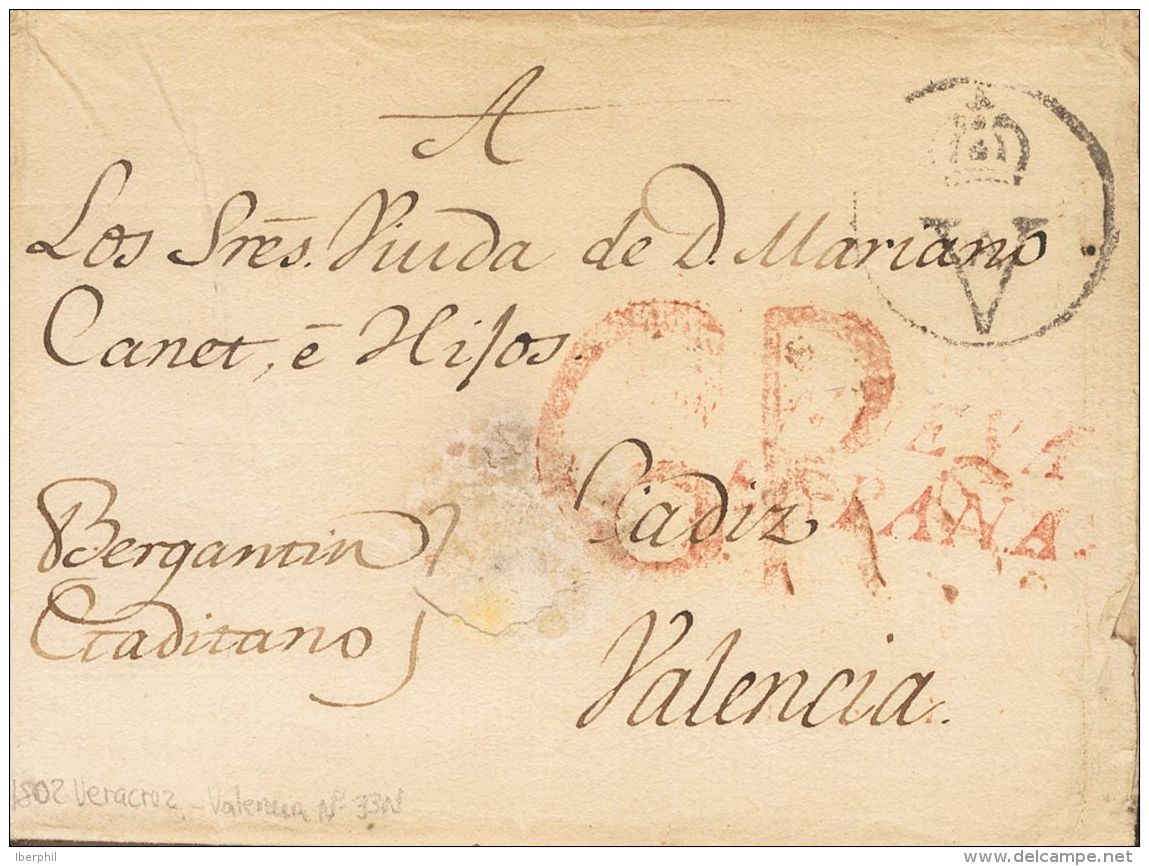 A
Los Sres. Viuda de D. Mariano
Canet, é Hijos.
V
CR
NUEVA
ESPAÑA.
Cadiz
Bergantin
Gaditano
Valencia.
1802 Veracruz - Valencia Nº 33N
Iberphil
www.delcampe.net